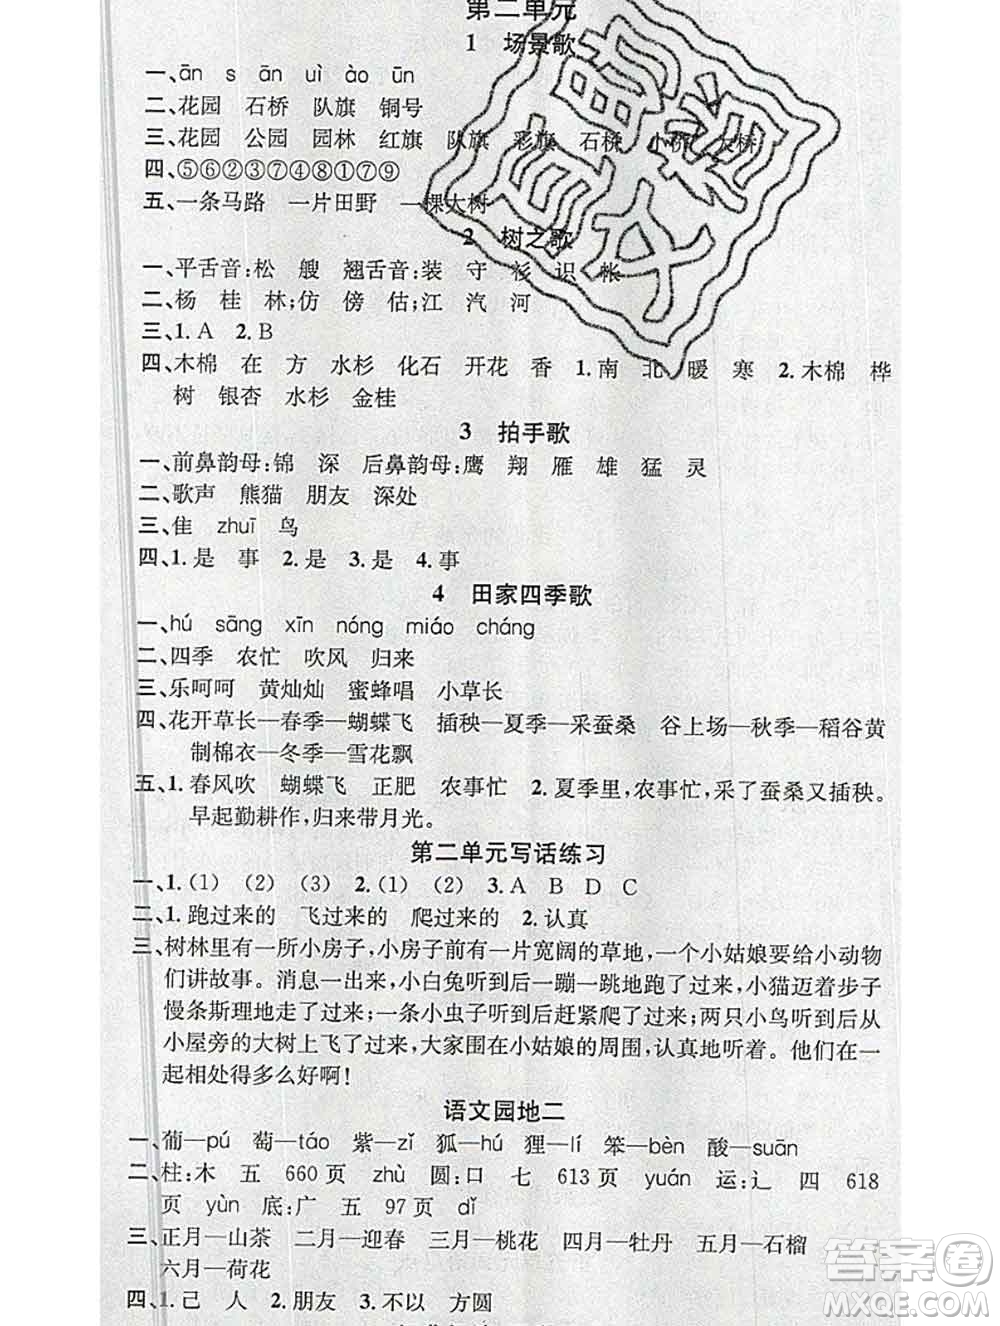 第二单元
1 场景歌
一、ān s ān uì ào ūn
二、花园 石桥 队旗 铜号
三、花园 公园 园林 红旗 队旗 彩旗 石桥 小桥 大桥
四、⑤⑥②③⑦④⑧①⑦⑨
五、一条马路 一片田野 一棵大树
2 树之歌
一、平舌音:松 艘 翘舌音:装 守 杉 识 帐
二、杨 桂 林;仿 傍 估;江 汽 河
三、1. A 2. B
四、木棉 在 方 水杉 化石 开花 香 1. 南 北 暖 寒 2. 木棉 桦
树 银杏 水杉 金桂
3 拍手歌
一、前鼻韵母:锦 深 后鼻韵母:鹰 翔 雁 雄 猛 灵
二、歌声 熊猫 朋友 深处
三、隹 zhuī 鸟
四、1. 是 事 2. 是 3. 是 4. 事
4 田家四季歌
一、hú sāng xīn nóng miáo cháng
二、四季 农忙 吹风 归来
三、乐呵呵 黄灿灿 蜜蜂唱 小草长
四、花开草长—春季—蝴蝶飞 插秧—夏季—采蚕桑 谷上场—秋季—稻谷黄
制棉衣—冬季—雪花飘
五、1. 春风吹 蝴蝶飞 正肥 农事忙 2. 夏季里,农事忙,采了蚕桑又插秧。
早起勤耕作,归来带月光。
第二单元写话练习
一、1. (1) (2) (3) 2. (1) (2) 3. A B D C
二、1. 跑过来的 飞过来的 爬过来的 2. 认真
三、树林里有一所小房子,小房子前有一片宽阔的草地,一个小姑娘要给小动物
们讲故事。消息一出来,小白兔听到后一蹦一跳地来了,小猫迈着步子
慢条斯理地走来了;一条小虫子听到后赶紧爬了过来;两只小鸟听到后从
小屋旁的大树上飞了过来,大家围在小姑娘的周围,认真地听着。他们在一
起相处得多么好啊!
语文园地二
一、葡—pú 萄—táo 紫—zǐ 狐—hú 狸—lí 笨—bèn 酸—suān
二、柱:木 五 660 页 zhù 圆:口 七 613 页 yuán 运:辶 四 618
页 yùn 底:广 五 97 页 dǐ
三、正月—山茶 二月—迎春 三月—桃花 四月—牡丹 五月—石榴
六月—荷花
四、1. 己 人 2. 朋友 3. 不以 方圆
答案圈
MXQE.COM